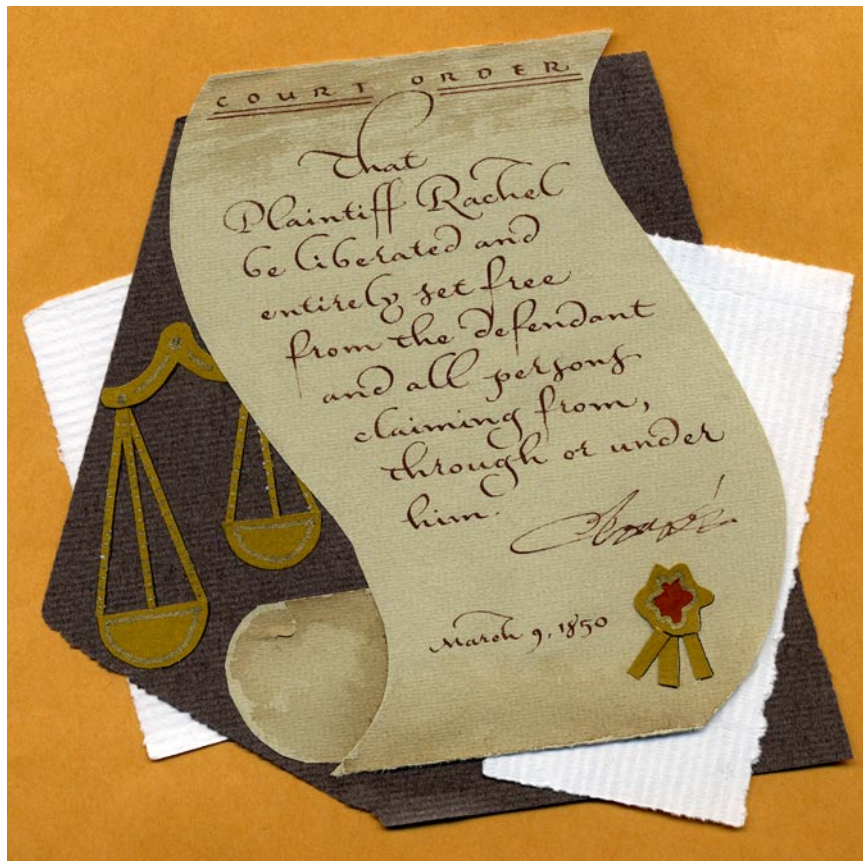 COURT ORDER
That
Plaintiff Rachel
be liberated and
entirely set free
from the defendant
and all persons
claiming from,
through or under
him.
March 9, 1850